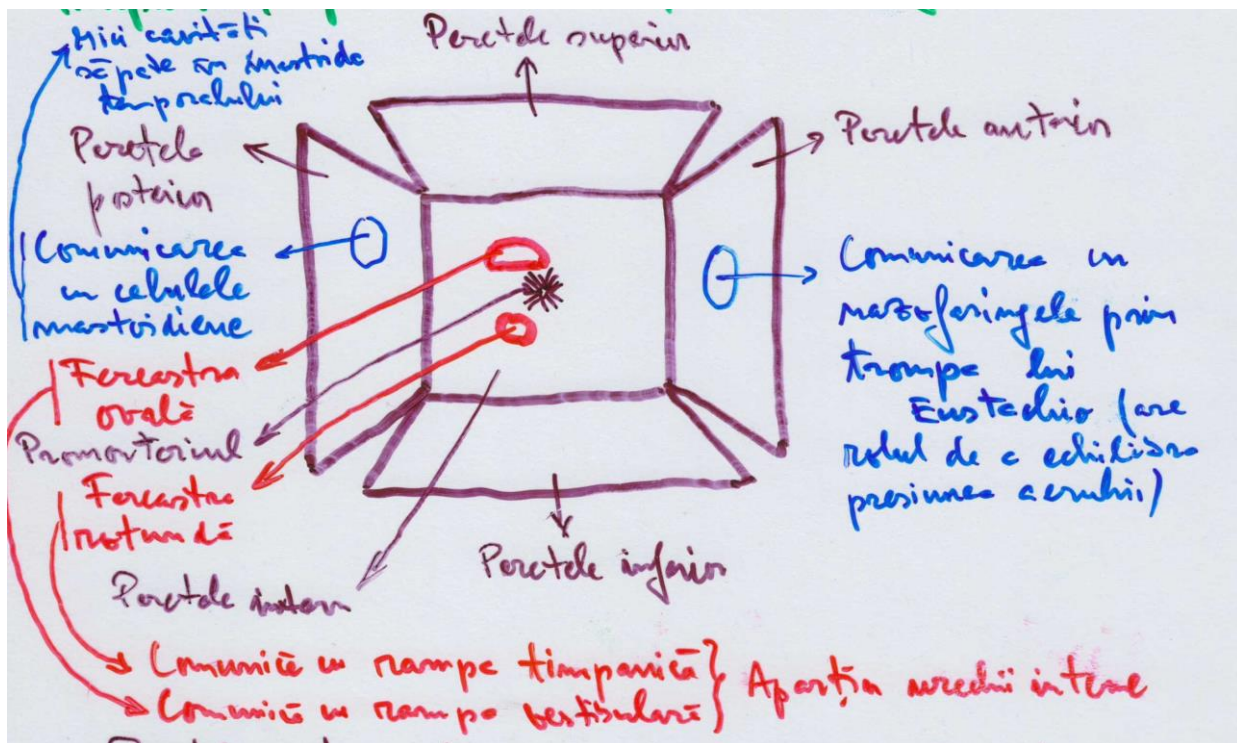 Mici cavități
săpate în mastoida
temporalului
Peretele superior
Peretele
posterior
Peretele anterior
Comunicarea
cu celulele
mastoidiene
Comunicarea cu
nazofaringele prin
trompa lui
Eustachio (are
rolul de a echilibra
presiunea aerului)
Fereastra
ovală
Promontoriul
Fereastra
rotundă
Peretele intern
Peretele inferior
Comunică cu rampa timpanică
Comunică cu rampa vestibulară
Aparțin urechii interne